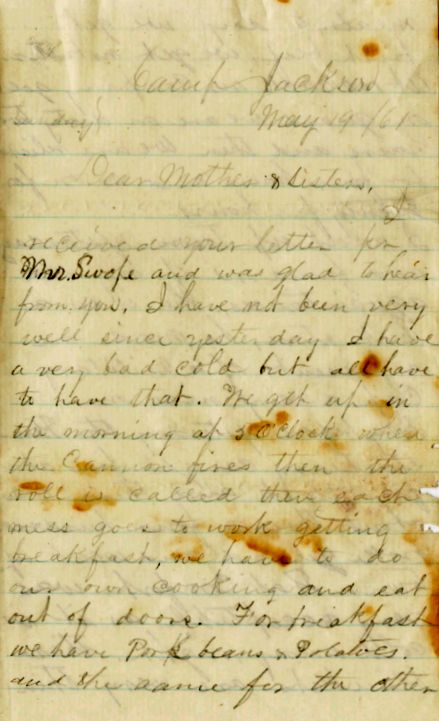 Camp Jackson
Sunday May 19 /61
Dear Mother & Sisters,
I
received your letter pr
Mr. Swope and was glad to hear
from you. I have not been very
well since yesterday I have
a very bad cold but all have
to have that. We get up in
the morning at 5 O'Clock when
the Cannon fires then the
roll is called then each
mess goes to work getting
breakfast, we have to do
our own cooking and eat
out of doors. For breakfast
we have Pork beans & Potatoes.
and the same for the other